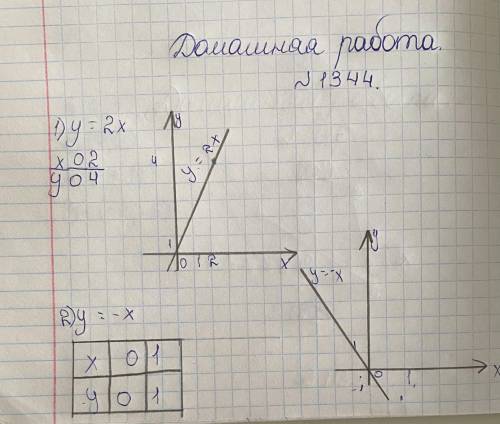 Домашная работа.
№1344.
1) y = 2x
x 0 2
y 0 4
y
4
y = 2x
1
0 1 2
x
2) y = -x
x 0 1
-y 0 1
y
y=-x
1
0
1
x